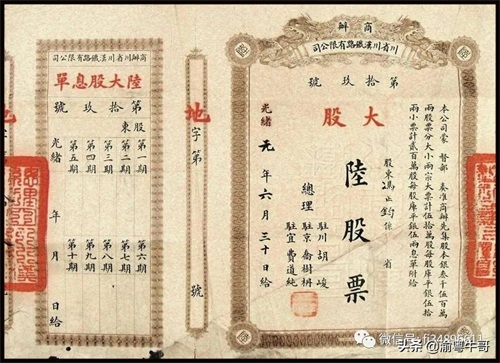 商辦
川省川漢鐵路有限公司
第拾玖號
大股
本公司蒙 督部 奏准商辦先集股本銀叁千伍百萬
兩股票分大小兩宗大票計伍拾萬股每股庫平銀伍拾
兩小票計貳百萬股每股庫平銀伍兩息單附給
股東馮正鈞係 省
陸股票
總理
駐川胡峻
駐京喬樹枏
駐宜費道純
光緒元年六月三十日給
地字第 號
商辦川省川漢鐵路有限公司
陸大股息單
第拾玖號
股東
第一期 第六期
第二期 第七期
第三期 第八期
第四期 第九期
第五期 第十期
光緒 年 月 日給
地
微信号:
头条 @渝粤牛哥